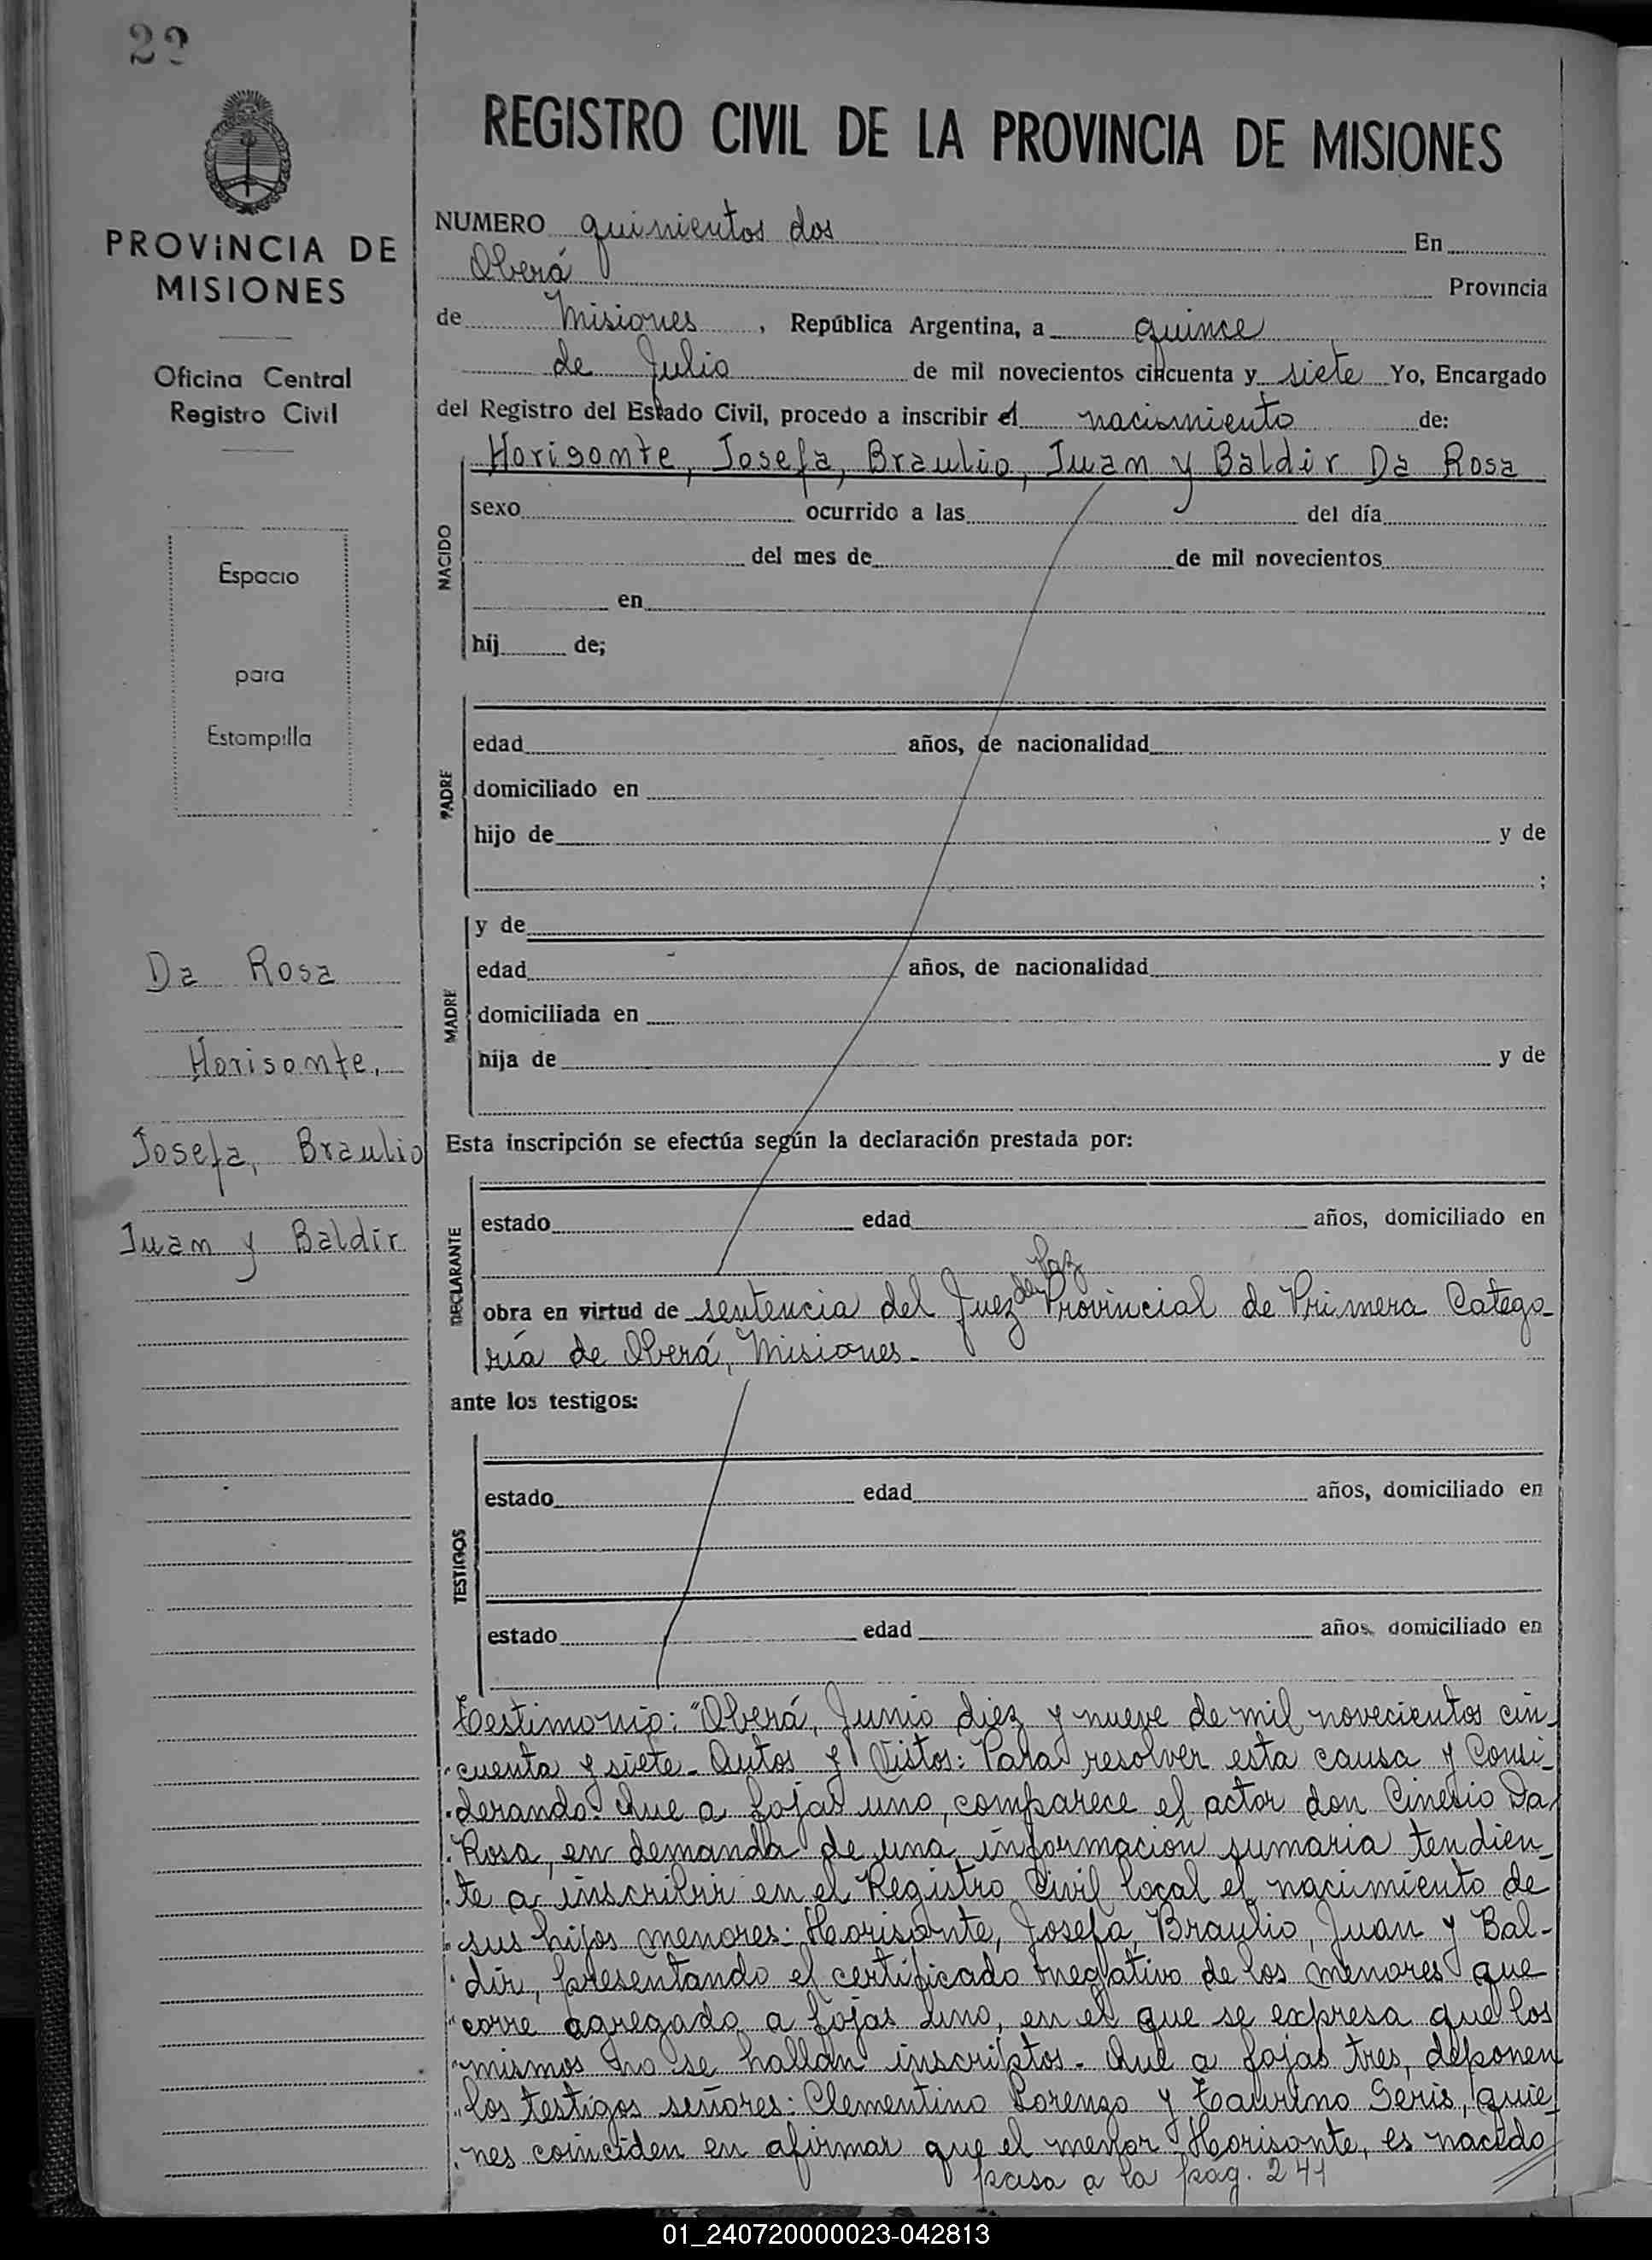 22
PROVINCIA DE
MISIONES
Oficina Central
Registro Civil
Espacio
para
Estampilla
Da Rosa
Horisonte,
Josefa, Braulio
Juan y Baldir
REGISTRO CIVIL DE LA PROVINCIA DE MISIONES
NUMERO quinientos dos En
Oberá Provincia
de Misiones, República Argentina, a quince
de Julio de mil novecientos cincuenta y siete Yo, Encargado
del Registro del Estado Civil, procedo a inscribir el nacimiento de:
Horisonte, Josefa, Braulio, Juan y Baldir Da Rosa
NACIDO
sexo ocurrido a las del día
del mes de de mil novecientos
en
hij de;
PADRE
edad años, de nacionalidad
domiciliado en
hijo de y de
;
MADRE
y de
edad años, de nacionalidad
domiciliada en
hija de y de
Esta inscripción se efectúa según la declaración prestada por:
DECLARANTE
estado edad años, domiciliado en
de Paz
obra en virtud de sentencia del Juez Provincial de Primera Catego-
ría de Oberá, Misiones.
ante los testigos:
TESTIGOS
estado edad años, domiciliado en
estado edad años, domiciliado en
Testimonio: "Oberá, Junio diez y nueve de mil novecientos cin-
"cuenta y siete. Autos y Vistos: Para resolver esta causa y Consi-
"derando: Que a fojas uno, comparece el actor don Cinesio Da
"Rosa, en demanda de una informacion sumaria tendien-
"te a inscribir en el Registro Civil local el nacimiento de
"sus hijos menores: Horisonte, Josefa, Braulio, Juan y Bal-
"dir, presentando el certificado negativo de los menores que
"corre agregado a fojas uno, en el que se expresa que los
"mismos no se hallan inscriptos. Que a fojas tres, deponen
"los testigos señores: Clementino Lorenzo y Taurino Seris, quie-
"nes coinciden en afirmar que el menor Horisonte, es nacido
pasa a la pág. 241
01_240720000023-042813